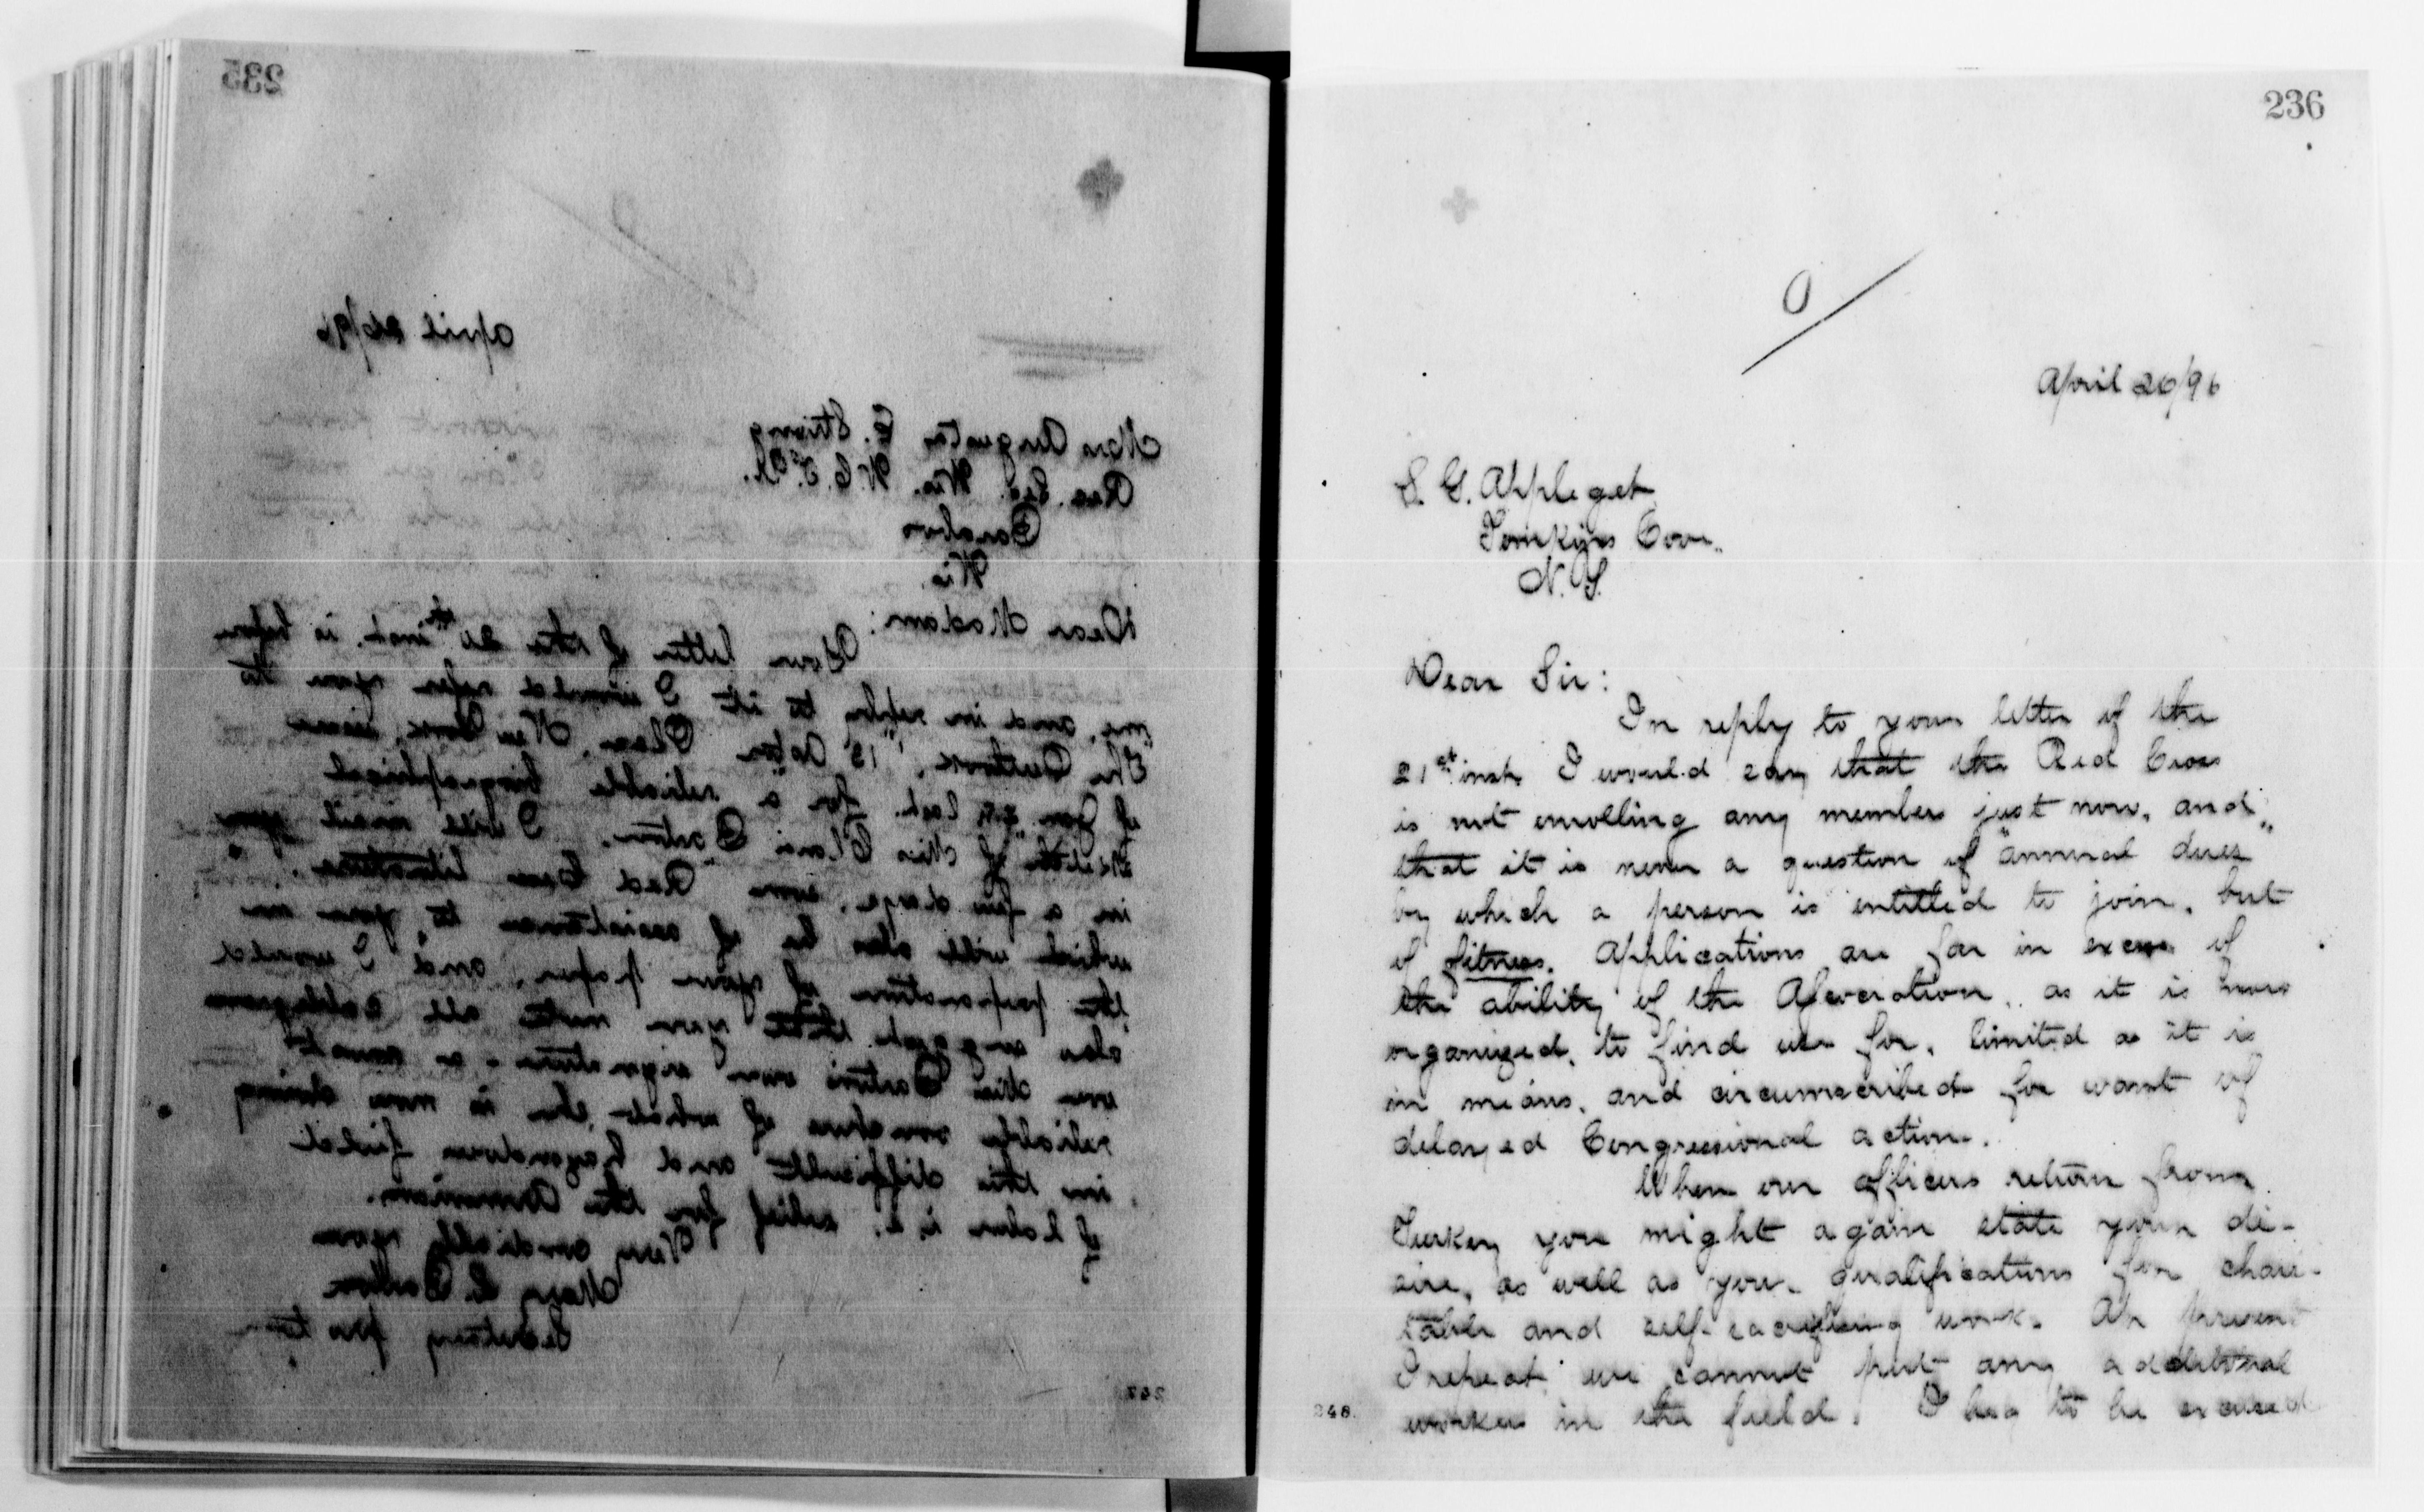 235
April 26/96
Mrs Augusta E. Strong
Rec. Sec. Wis. W.C.T.U.
Baraboo
Wis.
Dear Madam:
Your letter of the 20th inst. is before
me, and in reply to it I would refer you to
The Outlook, 13 Astor Place, New York, issue
of Jan. last. for a reliable biographical
sketch of Miss Clara Barton. I will mail you
in a few days, some Red Cross literature,
which will also be of assistance to you in
the preparation of your paper, and I would
also suggest that you note all cablegrams
over Miss Barton's own signature - as
reliable of what she is now doing
in the difficult and hazardous field
of labor i.e. relief for the Armenians.
Very cordially yours
Mary E.
Secretary pro tem
247
236
April 26/96
S. G. Appleget
Tomkins Cove.
N.Y.
Dear Sir:
In reply to your letter of the
21st inst. I would say that the Red Cross
is not enrolling any members just now, and
that it is never a question of "annual dues"
by which a person is entitled to join, but
of fitness. Applications are far in excess of
the ability of the Association, as it is now
organized, to find use for, limited as it is
in means, and circumscribed for want of
delayed Congressional action.
When our officers return from
Turkey you might again state your de-
sire, as well as your qualifications for chari-
table and self-sacrificing work. At present
I repeat we cannot put any additional
workers in the field. I beg to be excused
248